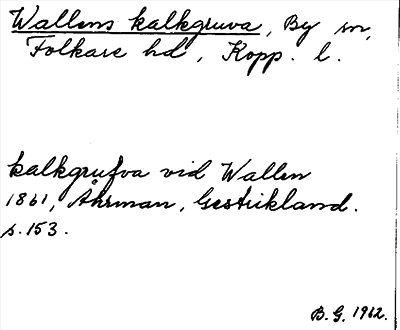 Wallens kalkgruva, By sn,
Folkare hd, Kopp. l.
kalkgrufva vid Wallen
1861, Åhrman, Gestrikland.
s. 153.
B. G. 1962.